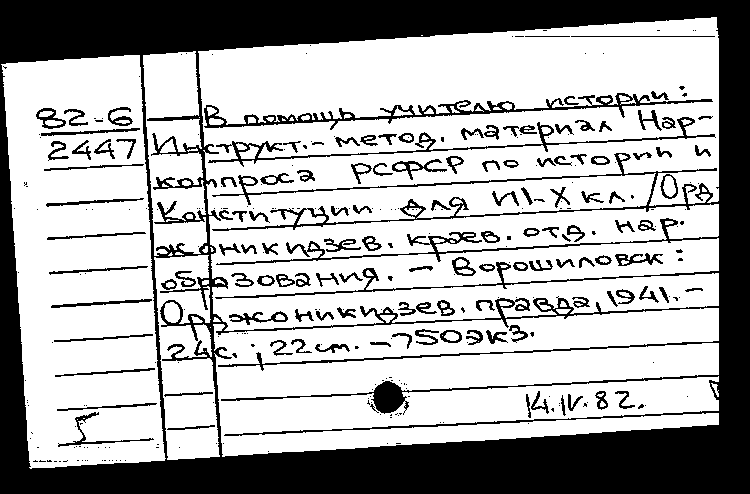 82-6
2447
В помощь учителю истории:
Инструкт.-метод. материал Нар-
компроса РСФСР по истории и
Конституции для VII-X кл. /Орд-
жоникидзев. краев. отд. нар.
образования. - Ворошиловск:
Орджоникидзев. правда, 1941. -
24с.; 22см. - 750экз.
14.IV.82.
5